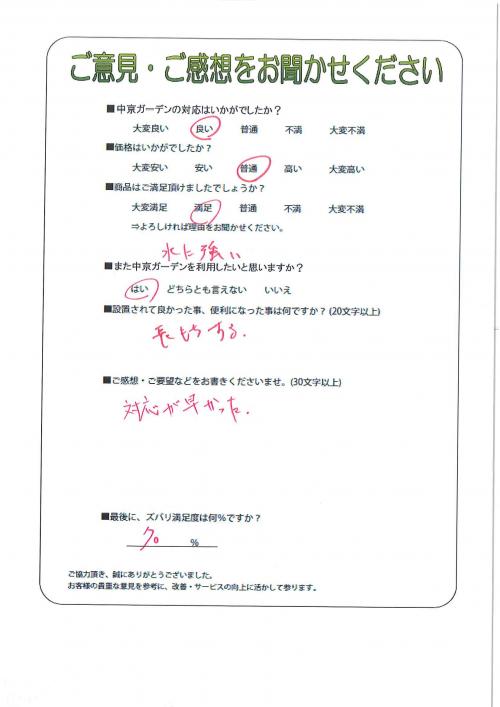 ご意見・ご感想をお聞かせください
■中京ガーデンの対応はいかがでしたか？
大変良い 良い 普通 不満 大変不満
■価格はいかがでしたか？
大変安い 安い 普通 高い 大変高い
■商品はご満足頂けましたでしょうか？
大変満足 満足 普通 不満 大変不満
⇒よろしければ理由をお聞かせください。
水に強い
■また中京ガーデンを利用したいと思いますか？
はい どちらとも言えない いいえ
■設置されて良かった事、便利になった事は何ですか？(20文字以上)
長もちする.
■ご感想・ご要望などをお書きくださいませ。(30文字以上)
対応が早かった.
■最後に、ズバリ満足度は何%ですか？
90 %
ご協力頂き、誠にありがとうございました。
お客様の貴重な意見を参考に、改善・サービスの向上に活かして参ります。